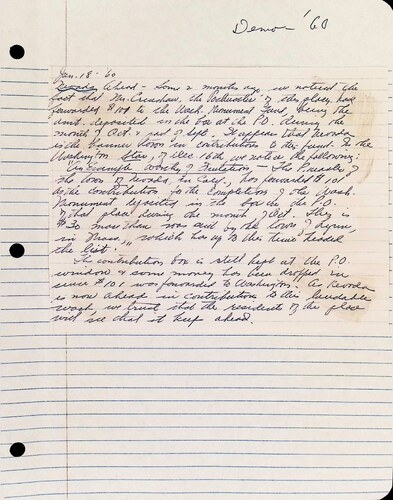 Democ '60
Jan. 18 - '60
Nevada Ahead - Some 2 months ago we noticed the
fact that Mr. Crenshaw, the Postmaster of this place, had
forwarded $101 to the Wash. Monument Fund, being the
amt. deposited in the box at the P.O. during the
month of Oct. & part of Sept. It appears that Nevada
is the banner town in contributions to this fund. In the
Washington Star, of Dec. 16th we notice the following:
"An Example Worthy of Imitation - The P.master of
the town of Nevada, in Calif., has forwarded $101
as the contribution to the completion of the Wash.
Monument deposited in the box in the P.O.
of that place during the month of Oct. This is
$30 more than was sent by the town of Lynn,
in Mass., which has up to this time headed
the list."
The contribution box is still kept at the P.O.
window & some money has been dropped in
since $101 was forwarded to Washington. As Nevada
is now ahead in contributions to this laudable
work, we trust that the residents of the place
will see that it keep ahead.